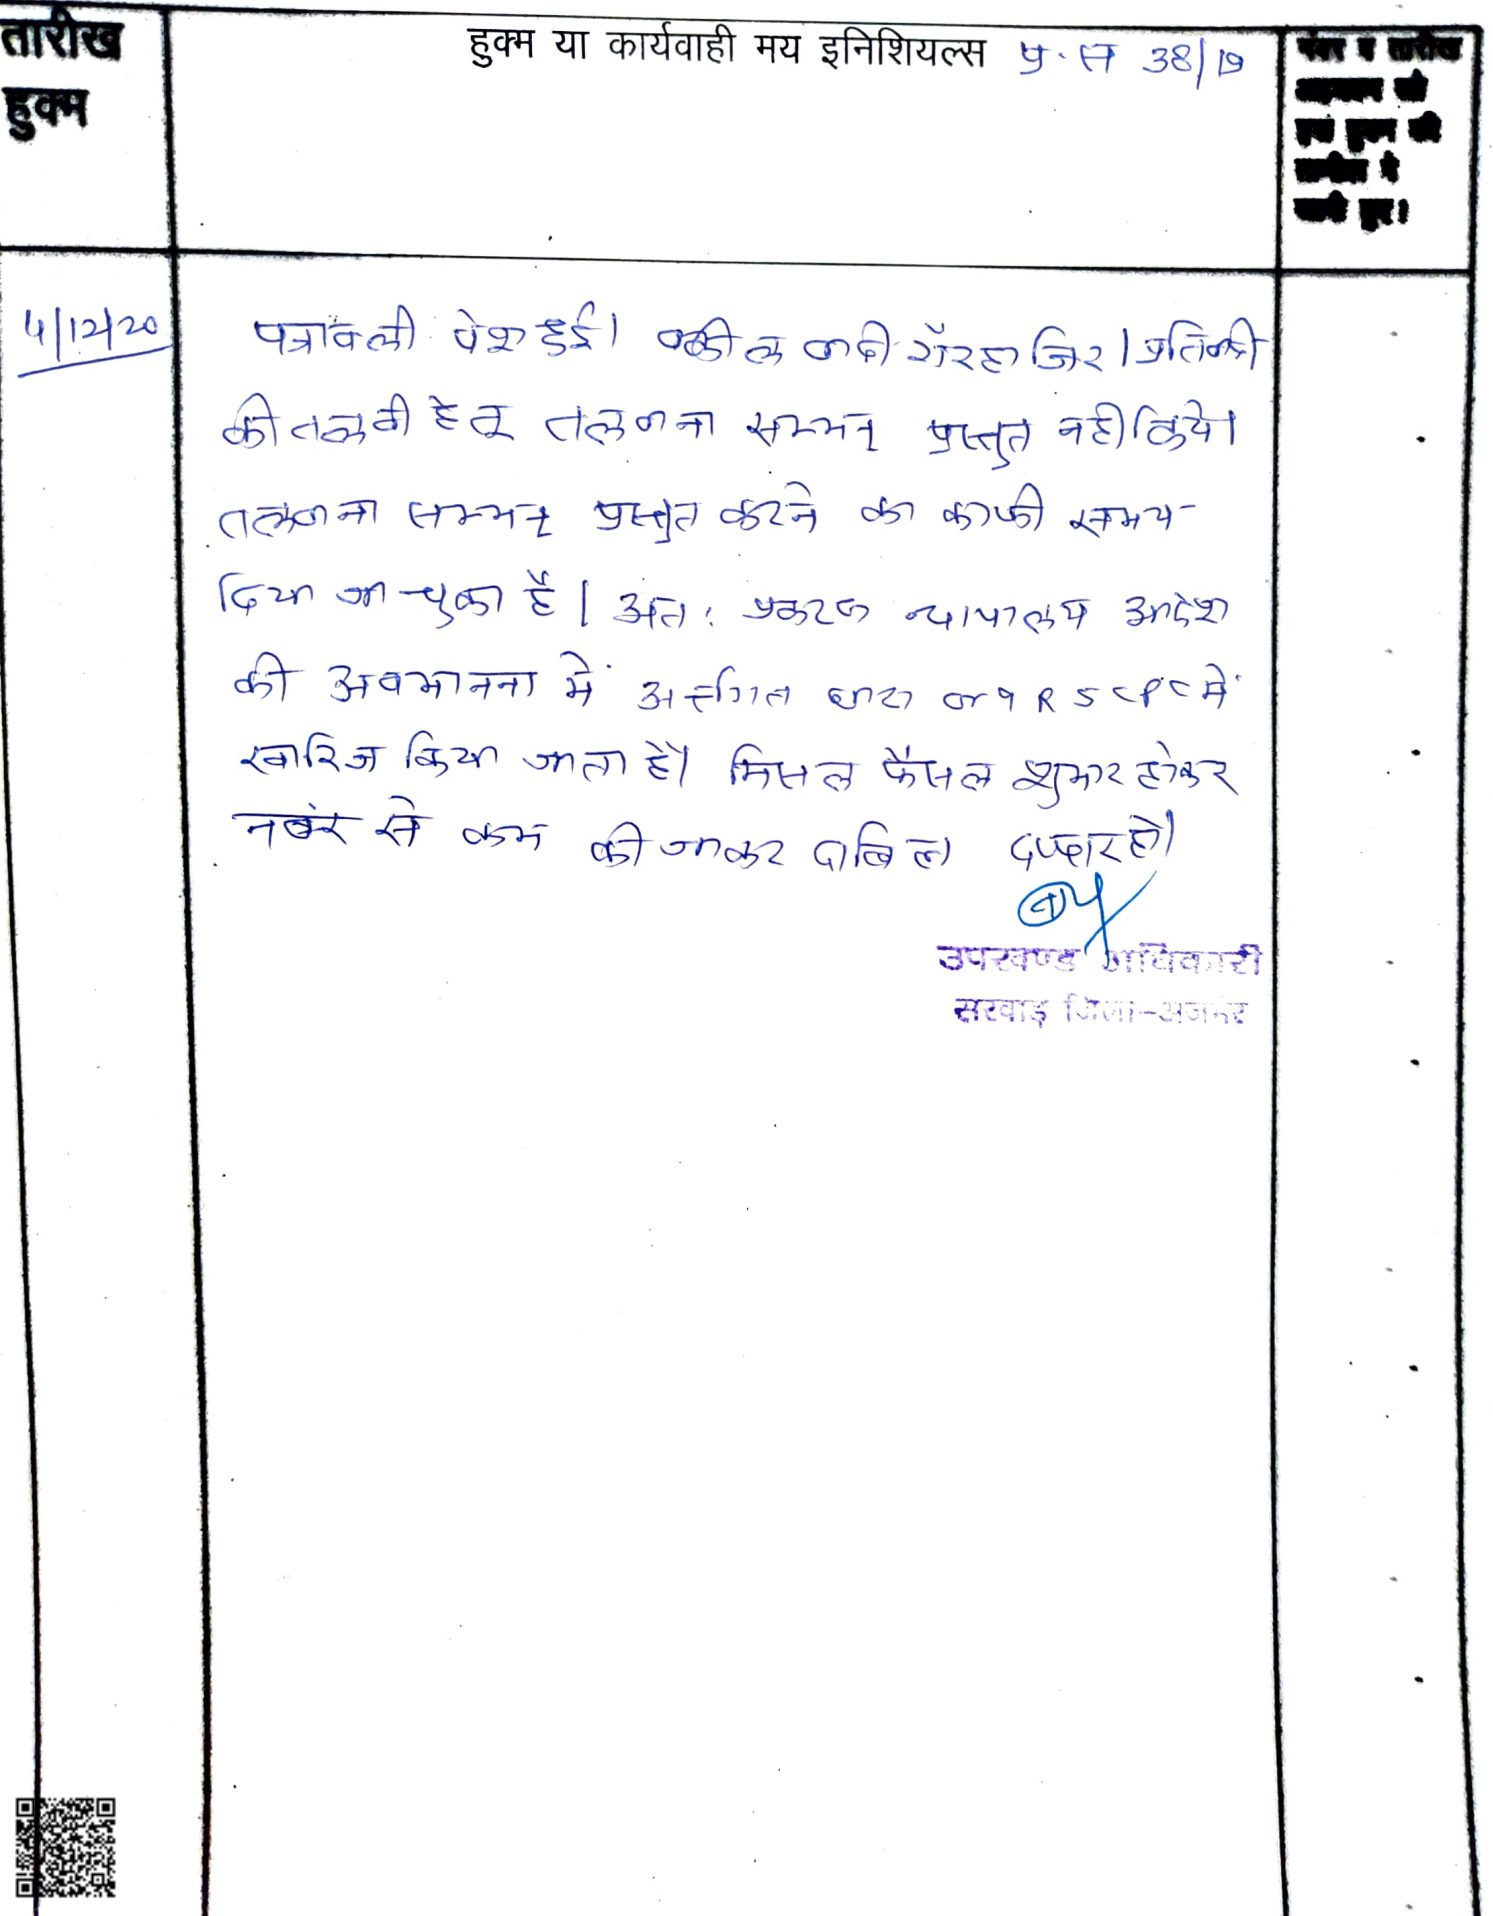 तारीख
हुक्म
हुक्म या कार्यवाही मय इनिशियल्स प्र.स 38/19
नंबर व तारीख
अहकाम जो
इस हुक्म की
तामील में
जारी हुए।
4/12/20
पत्रावली पेश हुई। वकील वादी गैरहाजिर। प्रतिवादी
की तलबी हेतू तलवाना सम्मन प्रस्तुत नही किये।
तलवाना सम्मन प्रस्तुत करने का काफी समय
दिया जा चुका है। अतः प्रकरण न्यायालय आदेश
की अवमानना में अर्न्तगत धारा or 9 R 5 CPC में
खारिज किया जाता है। मिसल फैसल शुमार होकर
नम्बर से कम की जाकर दाखिल दफ्तार हो।
उपखण्ड अधिकारी
सरवाड़ जिला-अजमेर